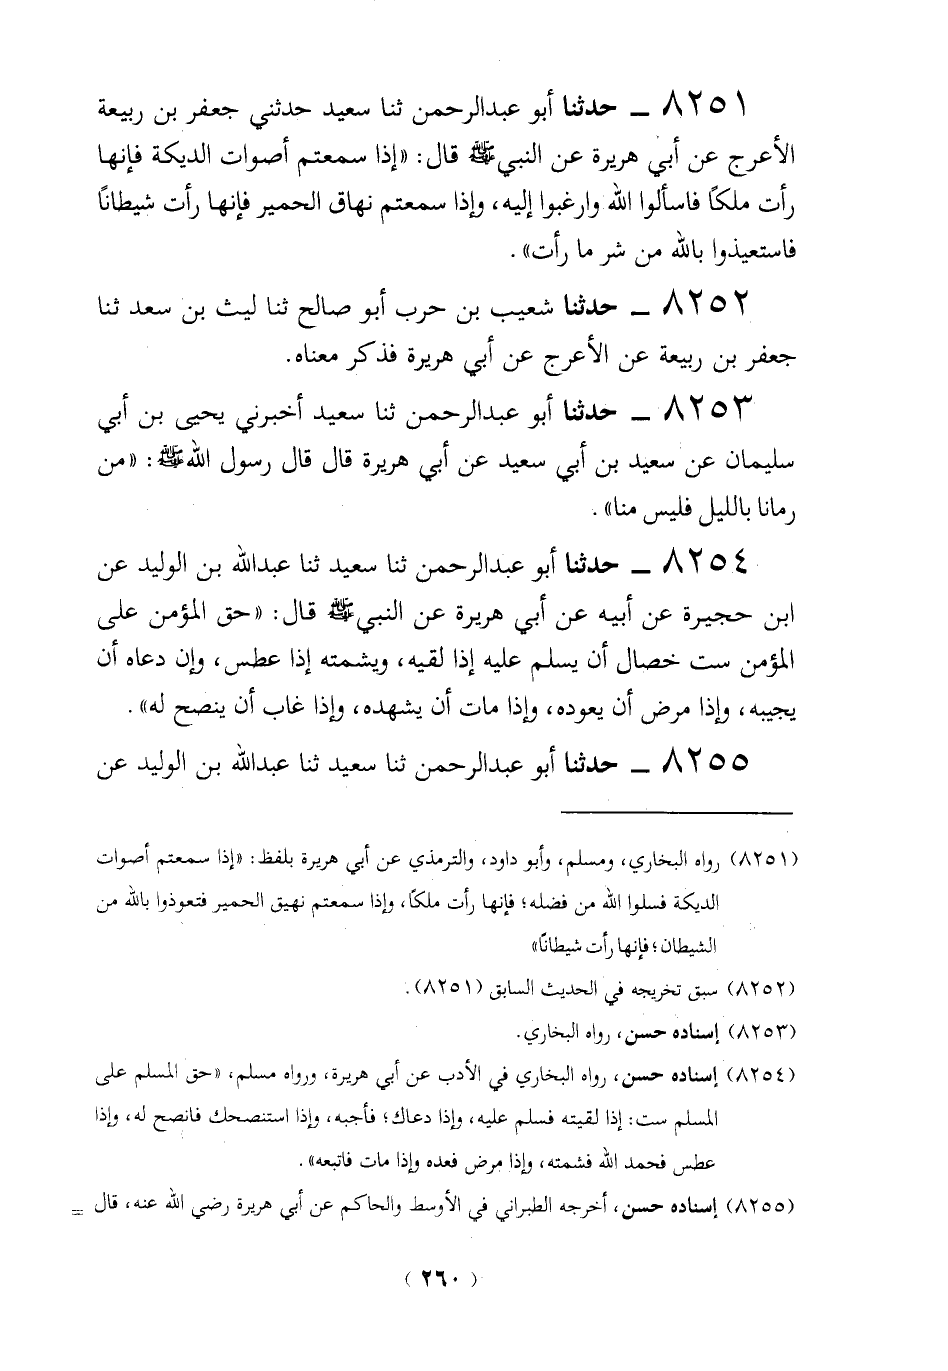 ٨٢٥١ ــ حدثنا أبو عبدالرحمن ثنا سعيد حدثني جعفر بن ربيعة
الأعرج عن أبي هريرة عن النبي ﷺ قال: «إذا سمعتم أصوات الديكة فإنها
رأت ملكًا فاسألوا الله وارغبوا إليه، وإذا سمعتم نهاق الحمير فإنها رأت شيطانًا
فاستعيذوا بالله من شر ما رأت».
٨٢٥٢ ــ حدثنا شعيب بن حرب أبو صالح ثنا ليث بن سعد ثنا
جعفر بن ربيعة عن الأعرج عن أبي هريرة فذكر معناه.
٨٢٥٣ ــ حدثنا أبو عبدالرحمن ثنا سعيد أخبرني يحيى بن أبي
سليمان عن سعيد بن أبي سعيد عن أبي هريرة قال قال رسول الله ﷺ: «من
رمانا بالليل فليس منا».
٨٢٥٤ ــ حدثنا أبو عبدالرحمن ثنا سعيد ثنا عبدالله بن الوليد عن
ابن حجيرة عن أبيه عن أبي هريرة عن النبي ﷺ قال: «حق المؤمن على
المؤمن ست خصال أن يسلم عليه إذا لقيه، ويشمته إذا عطس، وإن دعاه أن
يجيبه، وإذا مرض أن يعوده، وإذا مات أن يشهده، وإذا غاب أن ينصح له».
٨٢٥٥ ــ حدثنا أبو عبدالرحمن ثنا سعيد ثنا عبدالله بن الوليد عن
(٨٢٥١) رواه البخاري، ومسلم، وأبو داود، والترمذي عن أبي هريرة بلفظ: «إذا سمعتم أصوات
الديكة فسلوا الله من فضله؛ فإنها رأت ملكًا، وإذا سمعتم نهيق الحمير فتعوذوا بالله من
الشيطان؛ فإنها رأت شيطانًا»
(٨٢٥٢) سبق تخريجه في الحديث السابق (٨٢٥١).
(٨٢٥٣) إسناده حسن، رواه البخاري.
(٨٢٥٤) إسناده حسن، رواه البخاري في الأدب عن أبي هريرة، ورواه مسلم، «حق المسلم على
المسلم ست: إذا لقيته فسلم عليه، وإذا دعاك؛ فأجبه، وإذا استنصحك فانصح له، وإذا
عطس فحمد الله فشمته، وإذا مرض فعده وإذا مات فاتبعه».
(٨٢٥٥) إسناده حسن، أخرجه الطبراني في الأوسط والحاكم عن أبي هريرة رضي الله عنه، قال =
( ٢٦٠ )